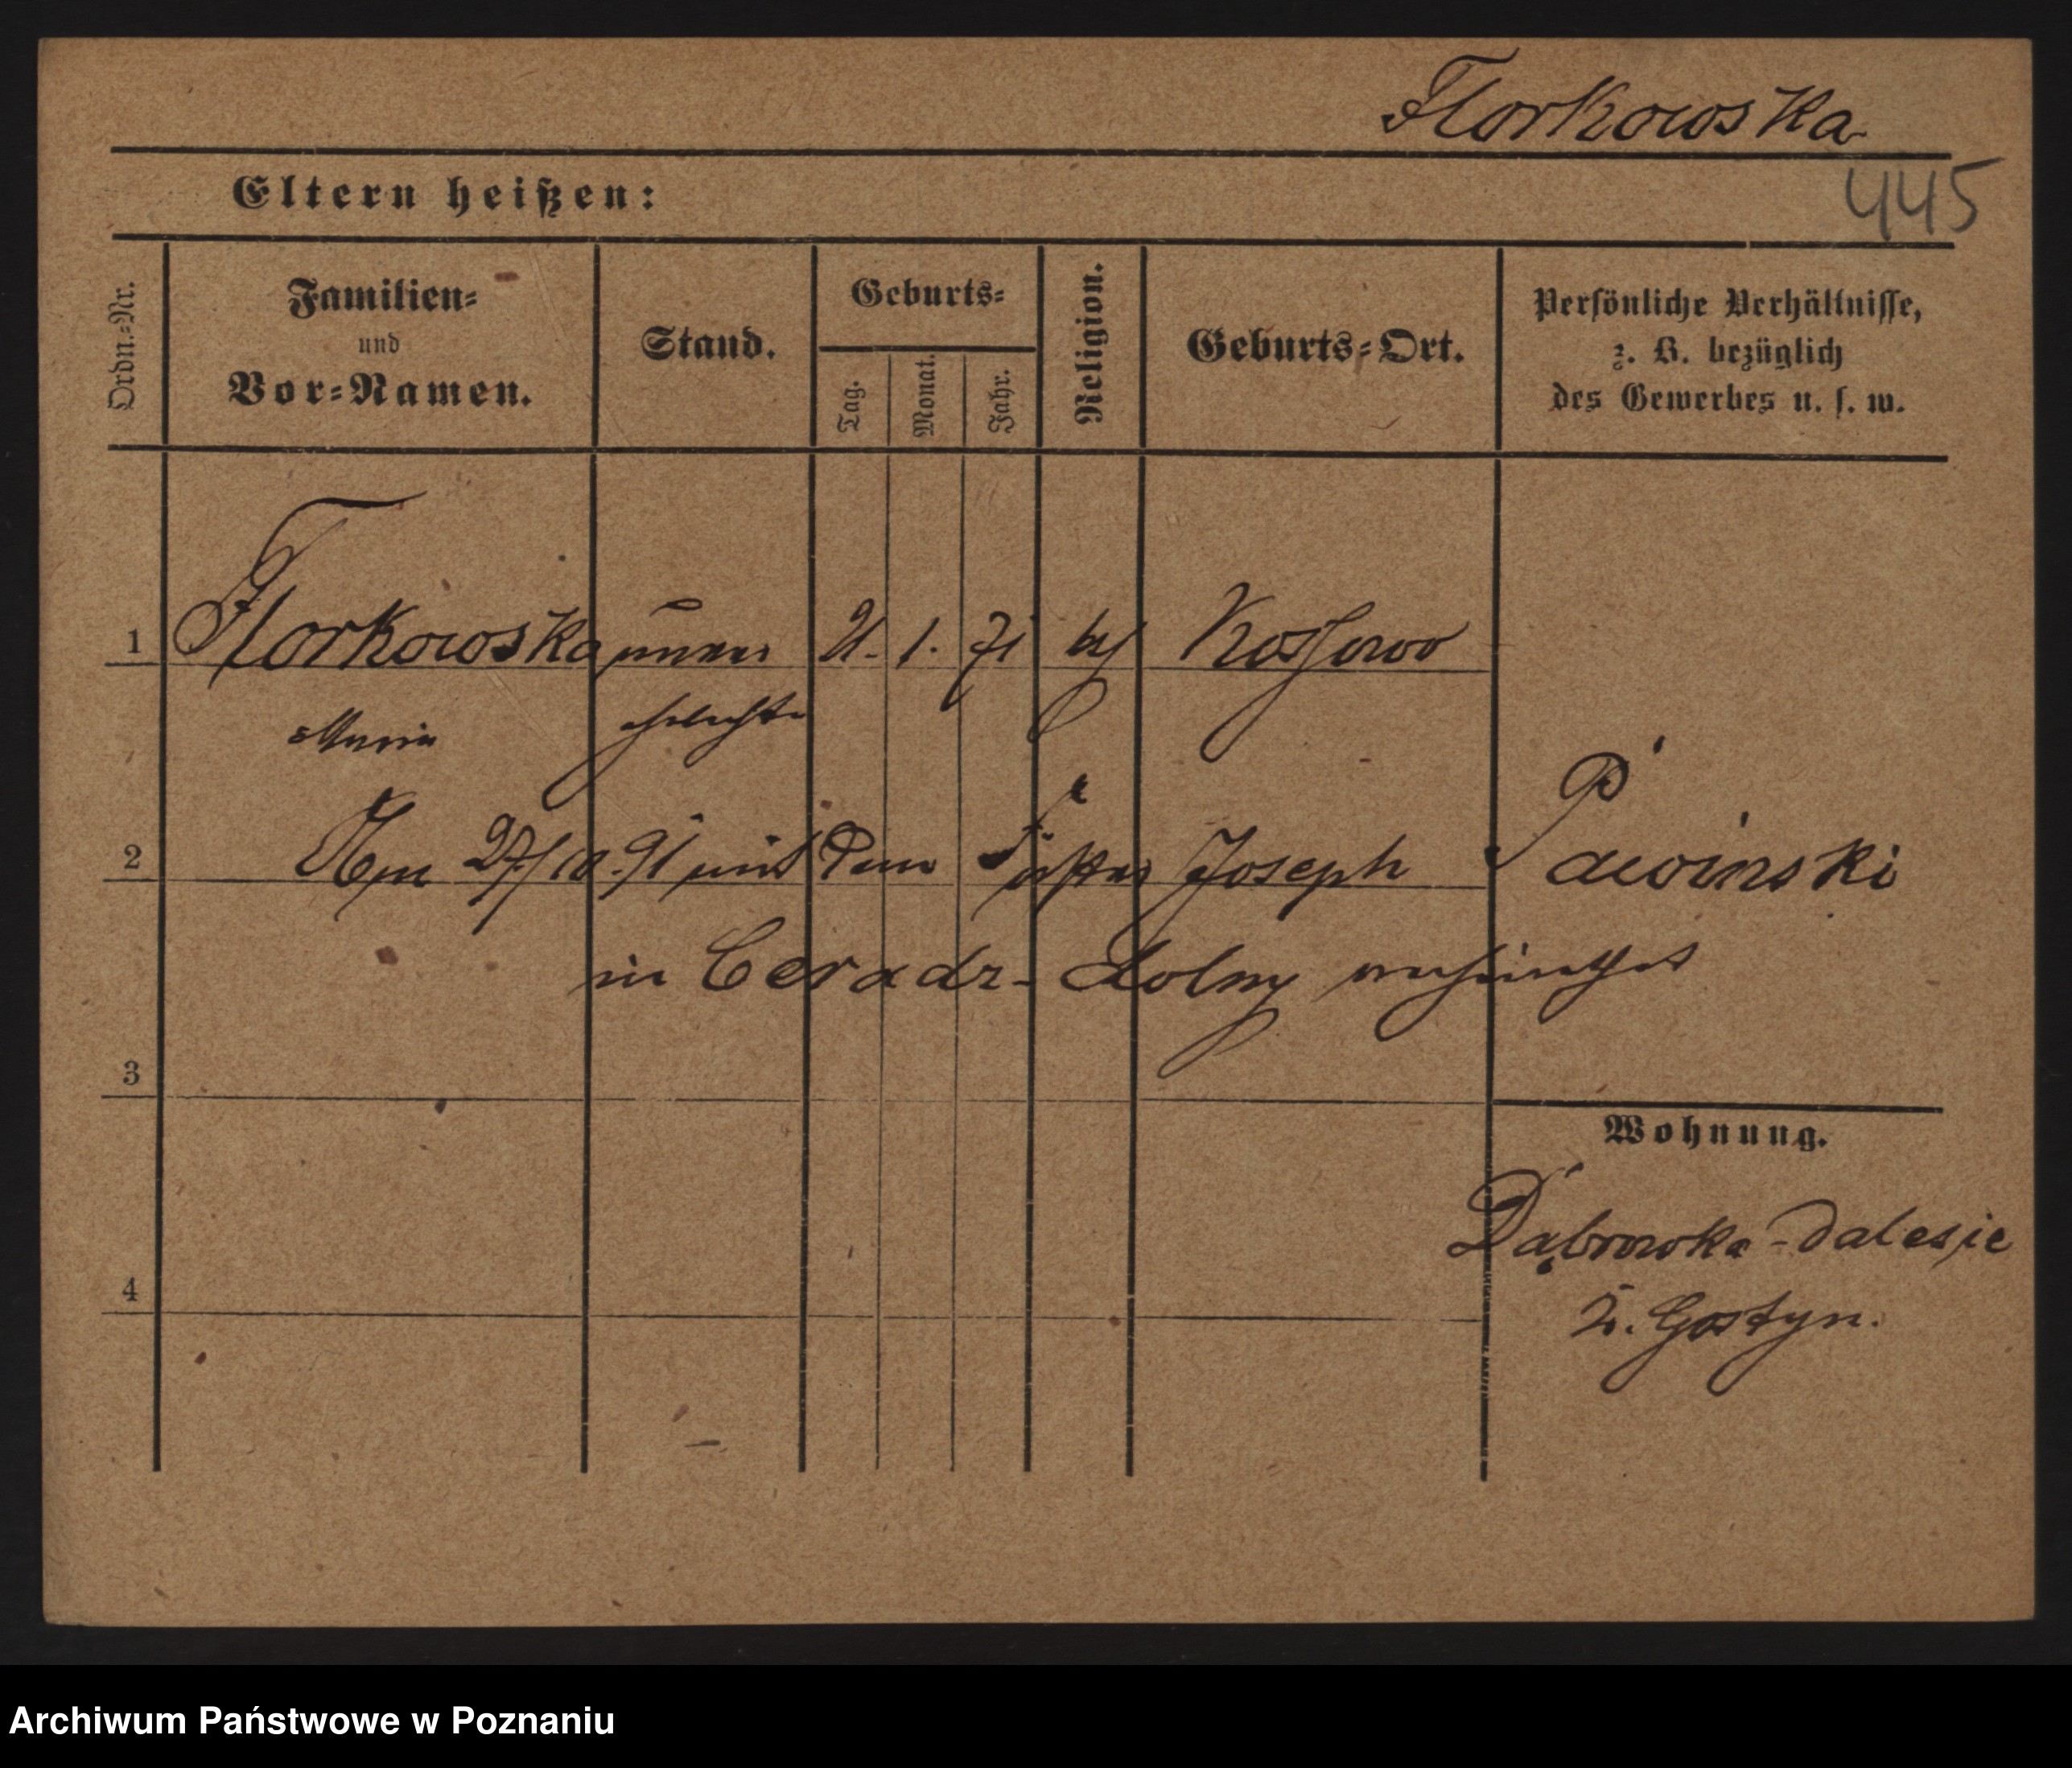 Florkowska
445
Eltern heißen:
Ordn.-Nr.
Familien-
und
Vor-Namen.
Stand.
Geburts-
Tag.
Monat.
Jahr.
Religion.
Geburts-Ort.
Persönliche Verhältnisse,
z. B. bezüglich
des Gewerbes u. s. w.
1 Florkowska unver 1. 71 Kossowo
Maria ehelichte
2 Am 27/10. 91 mit dem Joseph Pawinski
in Ceradz-Dolny verheirathet
3
Wohnung.
Dąbrowka-
4
Gostyn.
Archiwum Państwowe w Poznaniu